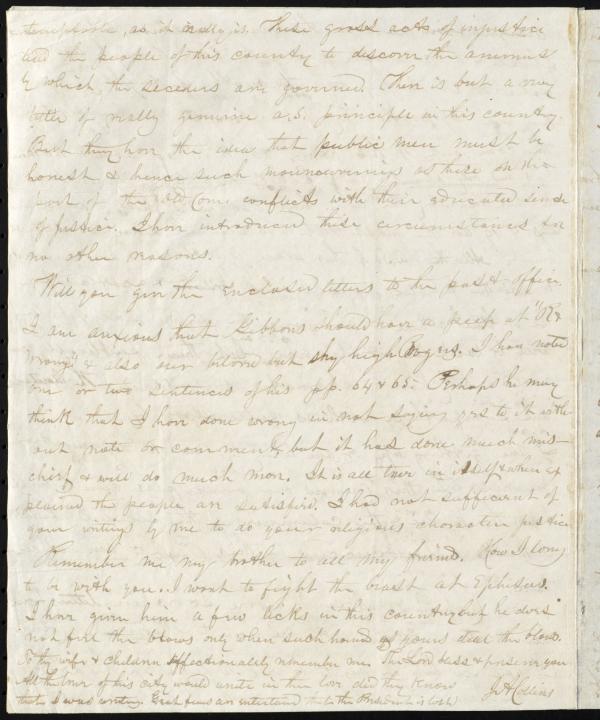 temptible, as it really is. These gross acts of injustice
lead the people of this country to discover the animus
by which the seceders are governed. There is but a very
little of really genuine a.s. principle in this country.
But they have the idea that public men must be
honest & hence such manouvering as these on the
part of the Old Com. conflicts with their educated sense
of justice. I have introduced these circumstances for
no other reasons.
Will you give the enclosed letters to the post office.
I am anxious that Gibbons should have a peep at "R &
Wrong" & also our beloved but sky high Rogers. I have noted
one or two sentences of his pp. 64 & 65. Perhaps he may
think that I have done wrong in not saying yes to it with
out note or comment, but it has done much mis-
chief & will do much more. It is all true in itself & when ex
plained the people are satisfied. I had not sufficient of
your writings by me to do your religious character justice
Remember me my brother to all my friends. How I long
to be with you. I want to fight the beast at Ephesus.
I have given him a few licks in this country but he does
not feel the blows only when such hands as yours deal the blows.
To thy wife & children affectionately remember me. The Lord bless & preserve you
All the true of this city would unite in their love did they know
that I was writing. Great fears are entertained that the President is lost
J A Collins